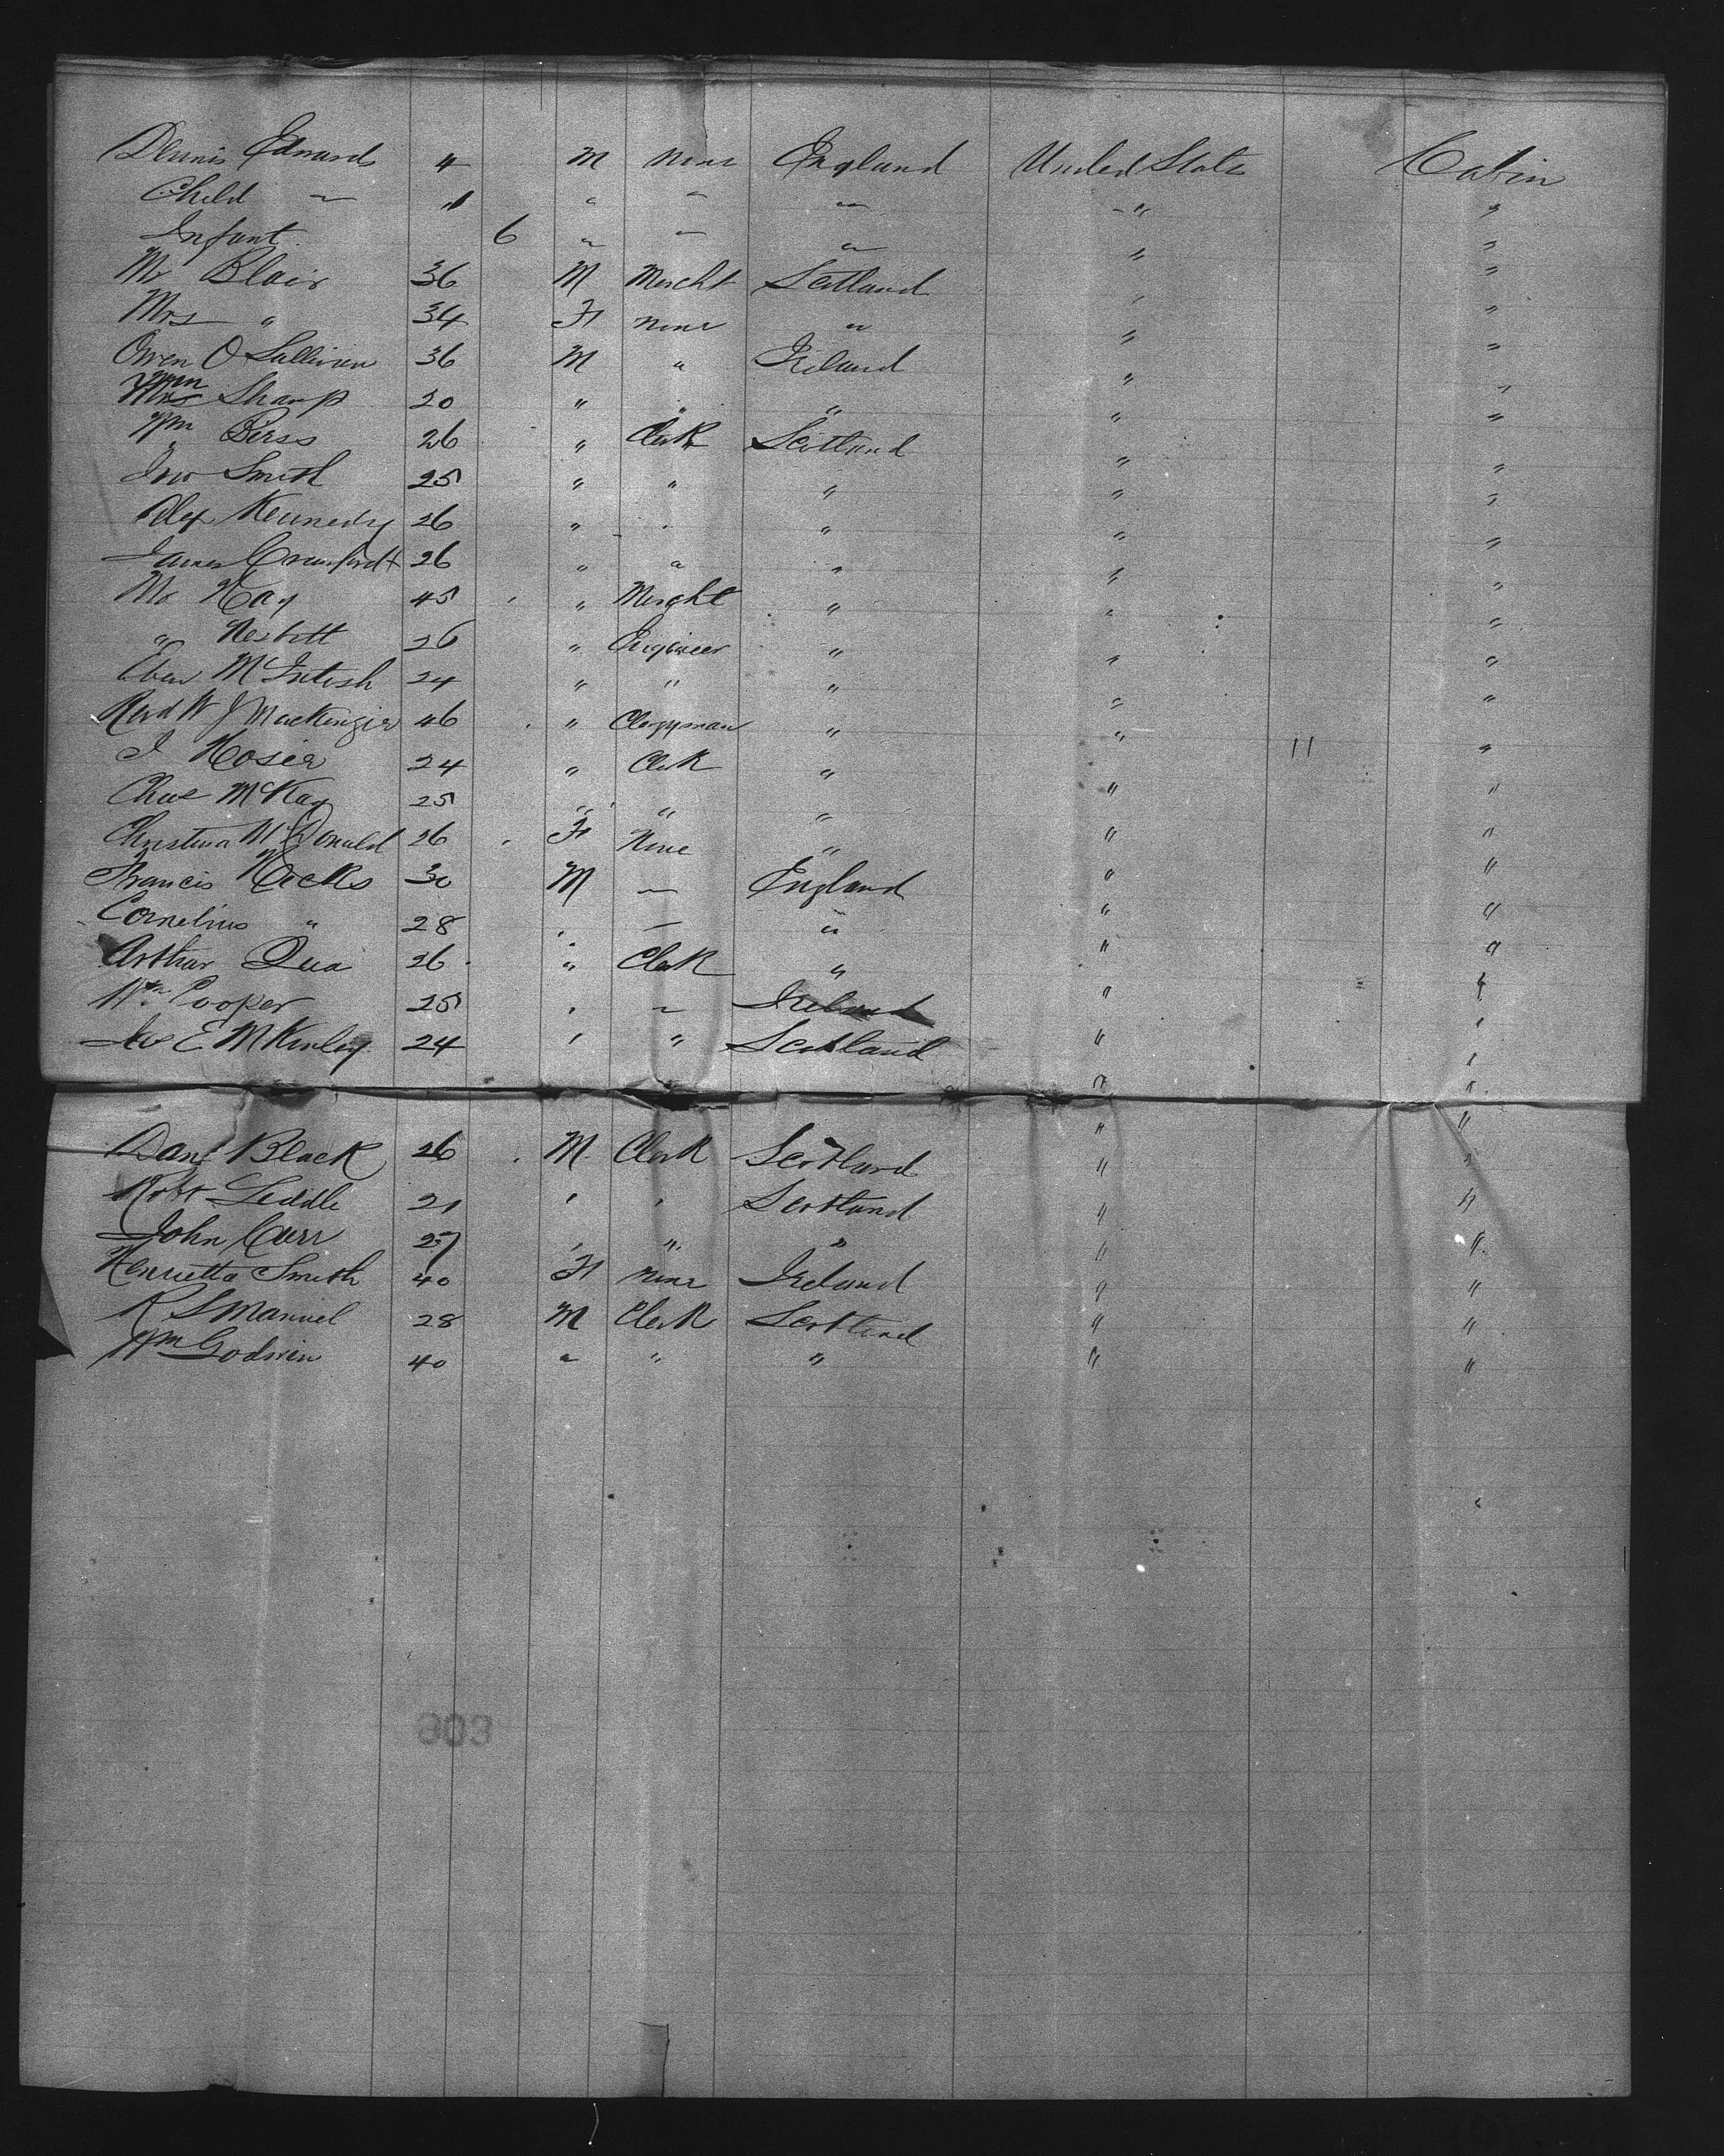 Dennis Edward 4 M none England United State Cabin
Child — 1 " — — " "
Infant 6 " — " " "
Mr Blair 36 M Mercht Scotland " "
Mrs " 34 F none " " "
Owen O Sullivan 36 M " Ireland " "
Wm Sharp 20 " " " " "
Wm Berss 26 " Clerk Scotland " "
Jno Smith 25 " " " " "
Alex Kennedy 26 " " " " "
James Crawford + 26 " " " " "
Mr Hay 45 " Mercht " " "
" Nesbitt 26 " Engineer " " "
Eben McIntosh 24 " " " " "
Revd W J MacKenzie 46 " Clergyman " " "
J Hosier 24 " Clerk " " 11 "
Chas McKay 25 " " " " "
Christina McDonald 26 F None " " "
Francis Hecks 30 M — England " "
Cornelius " 28 " — " " "
Arthur Qua 26 " Clerk " " "
Wm Cooper 25 " — Ireland " "
E McKinley 24 " " Scotland " "
Danl Black 26 M Clerk Scotland " "
Robt Liddle 21 " " Scotland " "
John Carr 27 " " " " "
Henrietta Smith 40 F none Ireland " "
R S Manuel 28 M Clerk Scotland " "
Wm Godwin 40 " " " " "